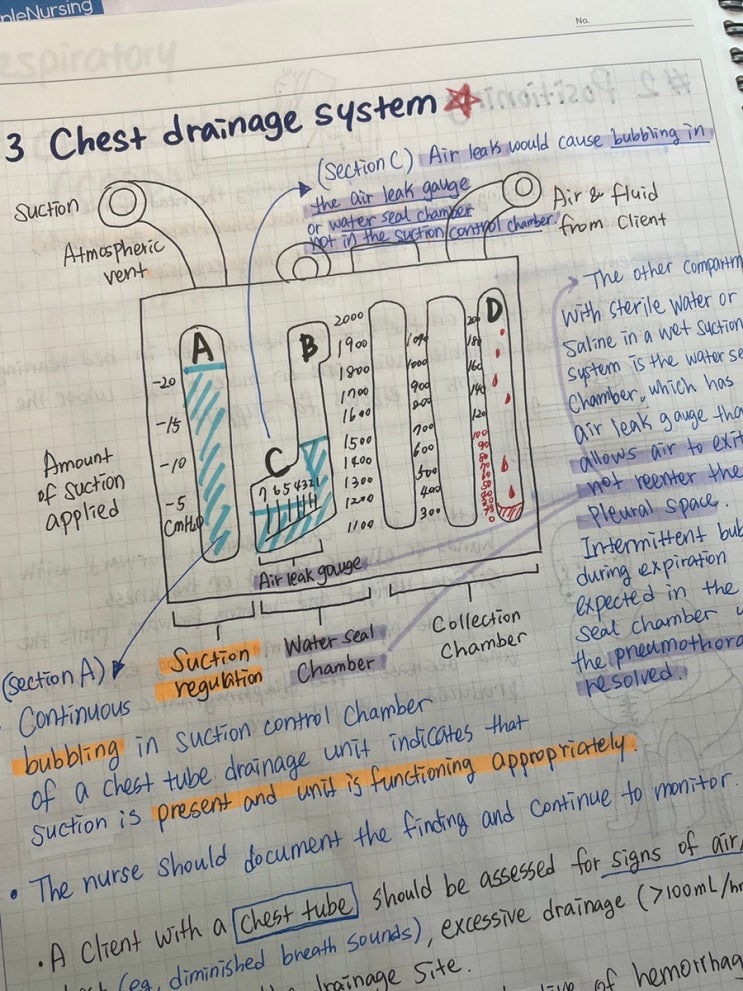 pleNursing
No.
3 Chest drainage system
(Section C) Air leak would cause bubbling in
the air leak gauge
or water seal chamber
not in the suction control chamber.
Suction
Atmospheric
vent
Air & fluid
from Client
A
B
C
D
-20
-15
-10
-5
CmH₂O
Amount
of suction
applied
7 6 5 4 3 2 1
Air leak gauge
2000
1900
1800
1700
1600
1500
1400
1300
1200
1100
1000
900
800
700
600
500
400
300
200
180
160
140
120
100
90
80
70
60
50
Suction
regulation
Water seal
Chamber
Collection
Chamber
The other
with sterile water or
Saline in a wet suction
system is the water
Chamber, which has
air leak gauge
allows air to exit
not reenter the
pleural space.
Intermittent
during expiration
expected in the
seal chamber
the
resolved.
(section A)
Continuous
bubbling in suction control Chamber
of a chest tube drainage unit indicates that
suction is present and unit is functioning appropriately.
• The nurse should document the finding and continue to monitor.
• A Client with a chest tube should be assessed for signs of air
(eg, diminished breath sounds), excessive drainage (>100mL/hr
drainage site.
of